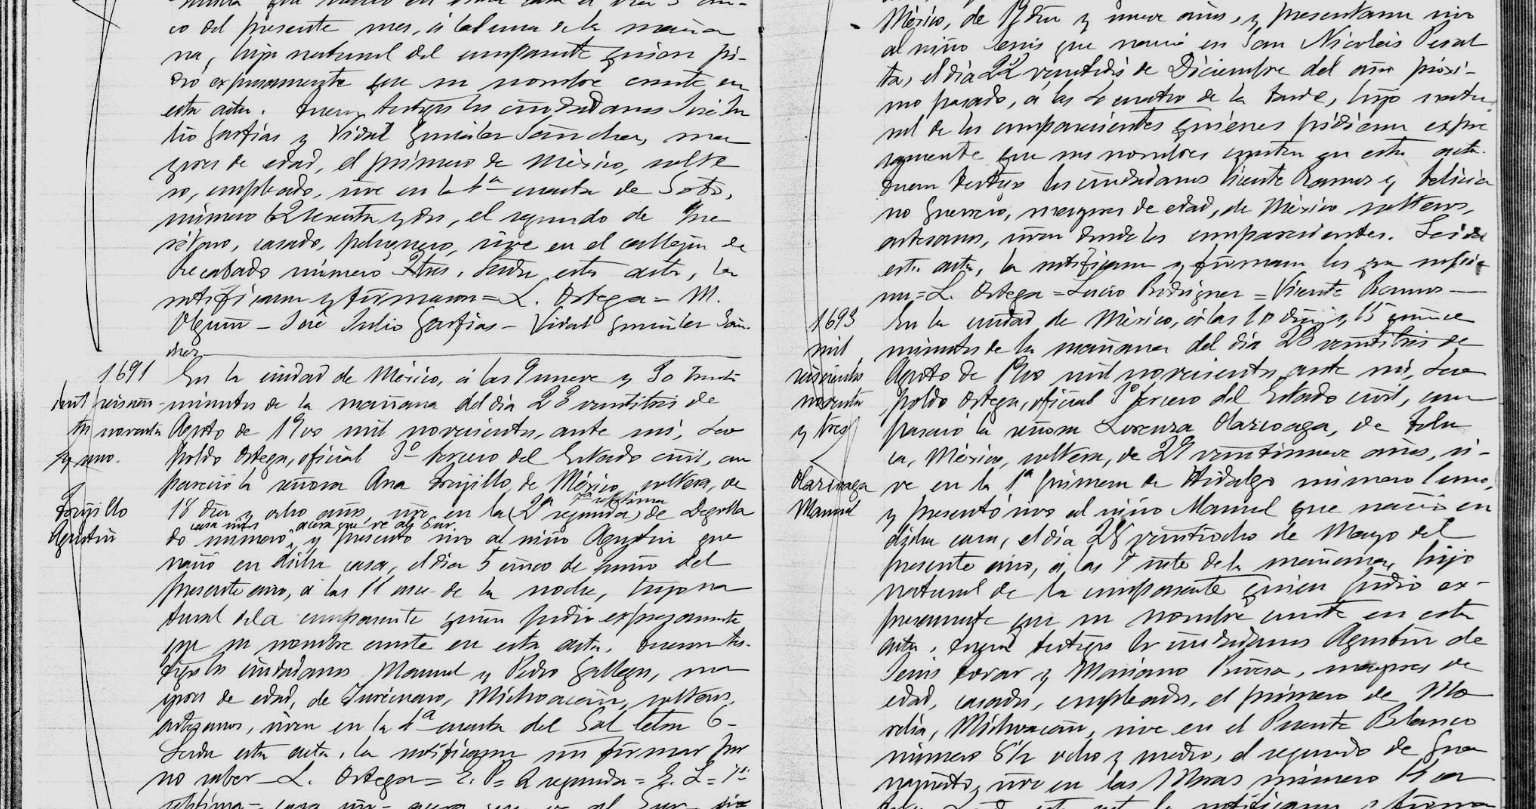 co del presente mes, á la una de la mañana
na, hijo natural del compareciente quien pi-
dió expresamente que su nombre conste en
esta acta. Fueron testigos los ciudadanos José Ju
lio Garfias y Vidal González Sánchez, ma
yores de edad, el primero de México, solte
ro, empleado, vive en la 4ª cuarta de Soto,
número 62 sesenta y dos, el segundo de Que
rétaro, casado, peluquero, vive en el callejón de
Recabado número 3 tres. Leida esta acta, la
ratificaron y firmaron = L. Ortega = M.
Olguin - José Julio Garfias - Vidal González Sán
chez
1691
mil seiscien-
tos noventa
y uno.
Trujillo
Agustin
En la ciudad de México, á las 9 nueve y 30 treinta
minutos de la mañana del dia 23 veintitres de
Agosto de 1900 mil novecientos, ante mi, Leo
poldo Ortega, oficial 3º tercero del Estado civil, com
pareció la señora Ana Trujillo, de México, soltera, de
18 diez y ocho años, vive en la (2ª segunda) de Degolla
1ª séptima
do número, y presentó vivo al niño Agustin que
casa sin acera que ve al Sur.
nació en dicha casa, el dia 5 cinco de Junio del
presente año, á las 11 once de la noche, hijo na
tural de la compareciente quien pidió expresamente
que su nombre conste en esta acta. Fueron tes-
tigos los ciudadanos Manuel y Pedro Gallegos, ma
yores de edad, de Michoacán, solteros,
artesanos, viven en la 4ª cuarta del Sal letra G-
Leida esta acta, la ratificaron sin firmar por
no saber - L. Ortega = E. P. = 2 segunda = E. L. = 7ª
séptima - casa sin - acera que ve al Sur -
México, de 19 diez y nueve años, y presentaron vivo
al niño Jenis que nació en San Nicolás Peral
ta, el dia 22 veintidos de Diciembre del año próxi-
mo pasado, á las 4 cuatro de la tarde, hijo natu
ral de los comparecientes quienes pidieron expre
samente que sus nombres consten en esta acta.
Fueron testigos los ciudadanos Vicente Ramos y Felicia
no Guerrero, mayores de edad, de México solteros,
artesanos, viven donde los comparecientes. Leida
esta acta, la ratificaron y firmaron los que supie
ron = L. Ortega = Lucio Rodriguez = Vicente Ramos -
1693
mil
seiscientos
noventa
y tres
Olarzoaga
Manuel
En la ciudad de México, á las 10 diez y 15 quince
minutos de la mañana del dia 23 veintitres de
Agosto de 1900 mil novecientos, ante mi, Leo
poldo Ortega, oficial 3º tercero del Estado civil, com
pareció la señora Lorenza Olarzoaga, de Tolu
ca, México, soltera, de 29 veintinueve años, vi-
ve en la 1ª primera de Hidalgo número 1 uno,
y presentó vivo al niño Manuel que nació en
dicha casa, el dia 28 veintiocho de Mayo del
presente año, á las 7 siete de la mañana, hijo
natural de la compareciente quien pidió ex-
presamente que su nombre conste en esta
acta. Fueron testigos los ciudadanos Agustin de
Jenis Tovar y Mariano Rivera, mayores de
edad, casados, empleados, el primero de Mo
relia, Michoacán, vive en el Puente Blanco
número 8½ ocho y medio, el segundo de Gua
najuato, vive en las Moras número